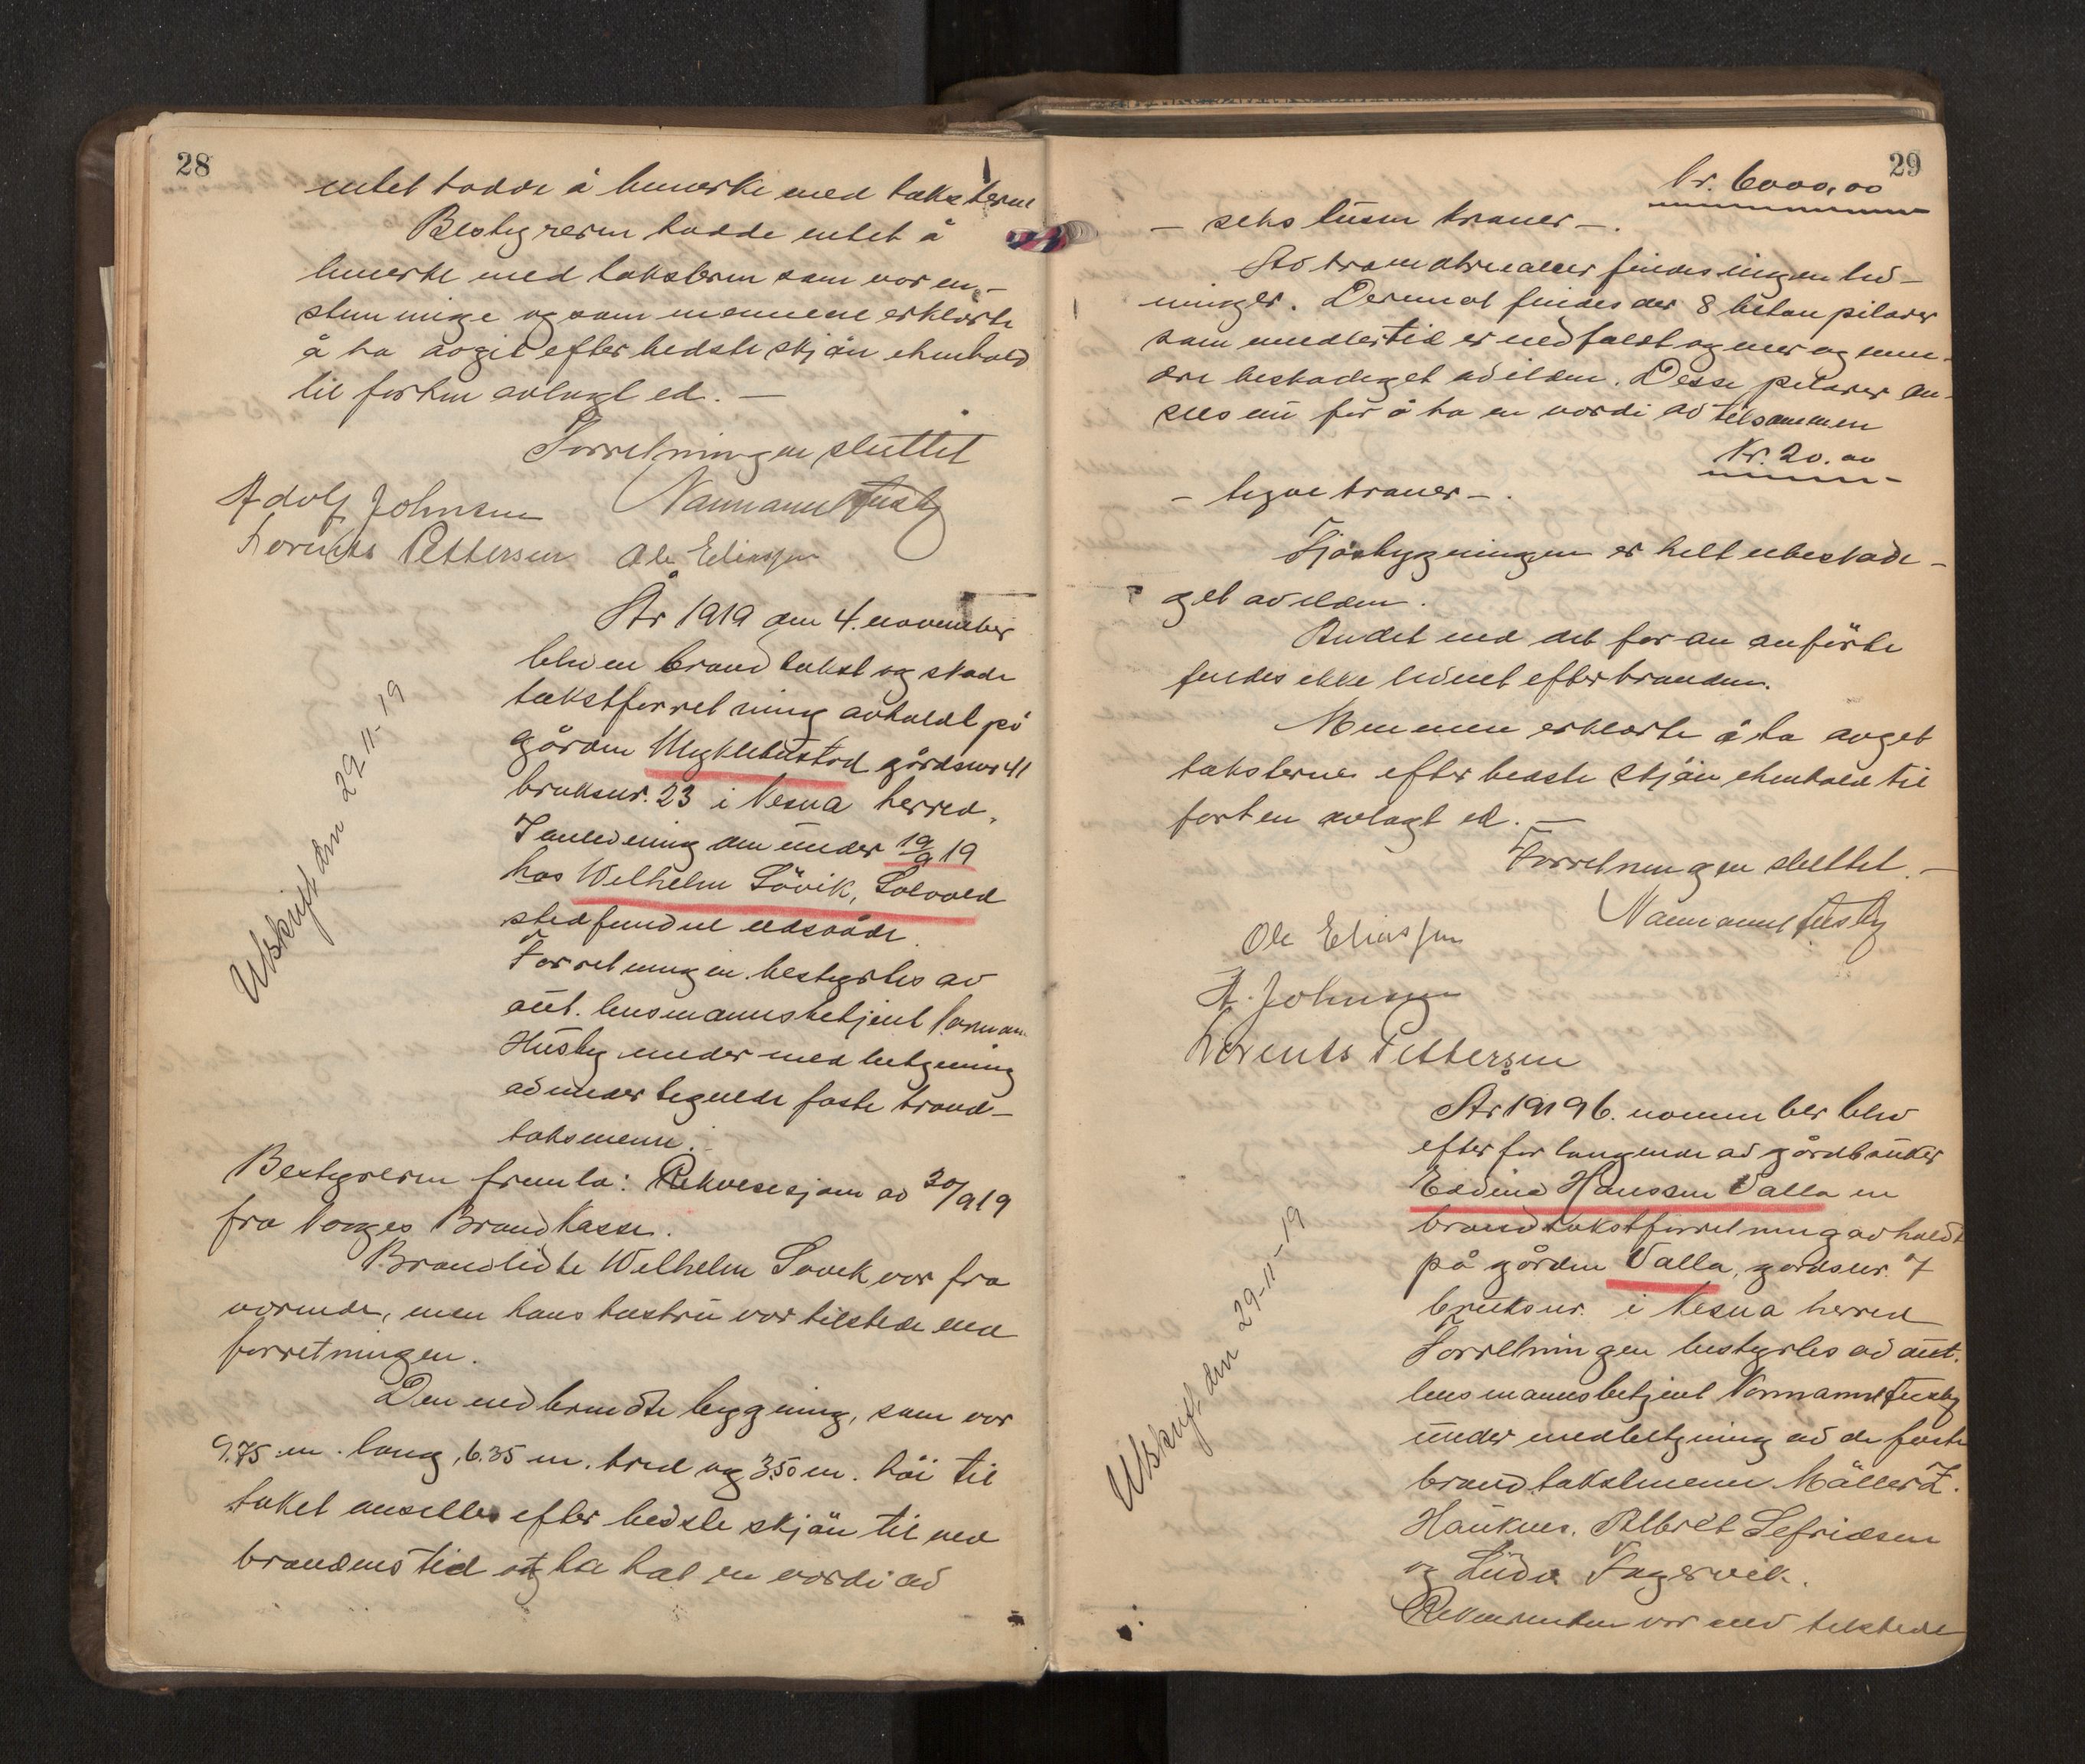 28
intet hadde å bemerke med taksterne
Bestyreren hadde intet å
bemerke med taksterne som var en-
stemmige og som mennene erklærte
å ha avgit efter bedste skjön i henhold
til fortin avlagt ed. —
Forretningen sluttet
Adolf Johnsen Normann Husby
Lorents Pettersen Ole Eliassen
År 1919 den 4. november
blev en brandtakst og skade
takstforretning avholdt på
gården Myklebustad gårdsnr 41
bruksnr. 23 i Nesna herred,
I anledning den under 19/9 19
hos Wilhelm Sövik, Solvold
stedfundne ildsvåde.
Forretningen bestyrtes av
aut. lensmannsbetjent Norman
Husby under medbetjening
av undertegnede faste brand-
takstmenn.
Utskrift den 29-11-19
Bestyreren fremla: Rekvisisjon av 30/9 19
fra Norges Brandkasse.
Brandlidte Wilhelm Sövik var fra
værende, men hans hustru var tilstede ved
forretningen.
Den nedbrendte bygning, som var
9.75 m. lang, 6.35 m. bred og 3.50 m. höi til
taket ansettes efter bedste skjön til ved
brandens tid at ha hat en verdi av
29
kr. 6000,00
— seks tusen kroner —.
Av brandmurer findes ingen lev-
ninger. Derimot findes der 8 beton pilarer
som imidlertid er nedfaldt og mer og min-
dre beskadiget av ilden. Disse pilarer an-
sees nu for å ha en verdi av tilsammen
Kr. 20.00
— tyve kroner —.
Fjösbygningen er helt ubeskadi-
get av ilden.
Andet end det foran anförte
findes ikke levnet efter branden.
Mennene erklærte å ha avgit
taksterne efter bedste skjön i henhold til
forten avlagt ed. —
Forretningen sluttet. —
Normann Husby
Ole Eliassen
A. Johnsen
Lorents Pettersen
År 1919 6. november blev
efter forlangende av gårdbruker
Edvind Hanssen Valla en
brandtakstforretning avholdt
på gården Valla, gårdsnr. 7
bruksnr. i Nesna herred
Forretningen bestyrtes av aut.
lensmannsbetjent Normann Husby
under medbetjening av de faste
brandtakstmenn Möller Z.
Hauknes, Albrét Sefridsen
og Ludv. Fagervik.
Rekvirenten var selv tilstede
Utskrift den 29-11-19